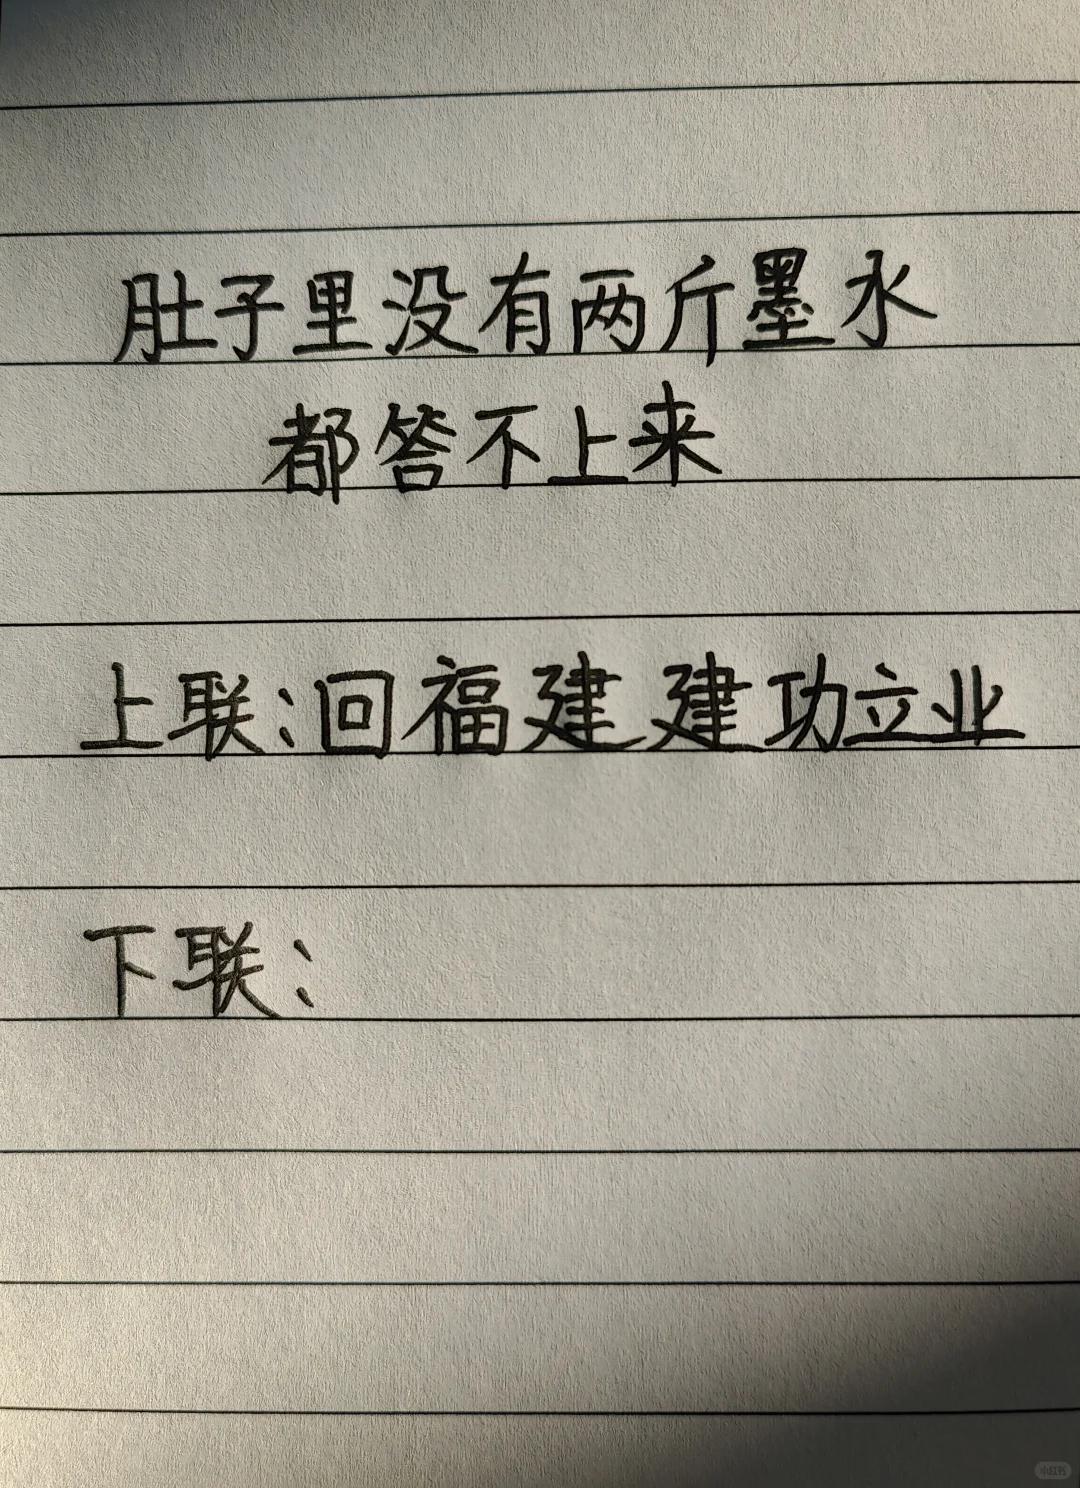 肚子里没有两斤墨水
都答不上来
上联:回福建建功立业
下联:
小红书